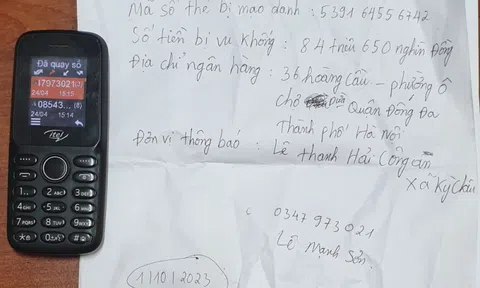 Đã quay số
17973021(3)
24/04 15:15
+08543...(8)
24/04 15:14
itel
Mã số thẻ bị mạo danh : 5391 6455 6742
Số tiền bị vu khống : 84 triệu 650 nghìn Đồng
Địa chỉ ngân hàng : 36 hoàng Cầu - phường ô
Chợ Dừa Quận Đống Đa
Thành phố Hà Nội
Đơn vị thông báo : Lê thanh Hải Công an
xã Kỳ Châu
0347 973 021
Lê Mạnh Sơn
1/10/2023